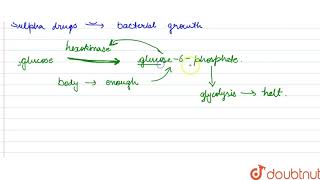 sulpha drugs → bacterial growth
hexokinase
glucose → glucose-6-phosphate.
body → enough
glycolysis → halt.
doubtnut